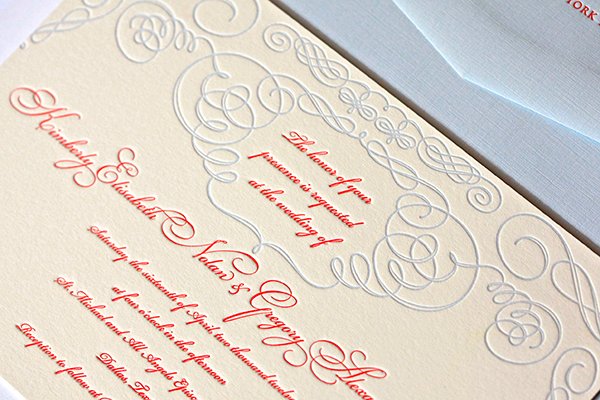 The honor of your
presence is requested
at the wedding of
Kimberly Elisabeth Nolan & Gregory Alexa
Saturday the sixteenth of April, two thousand twelve
at four o'clock in the afternoon
St. Michael and All Angels Episc
Dallas, Tex
Reception to follow at
YORK